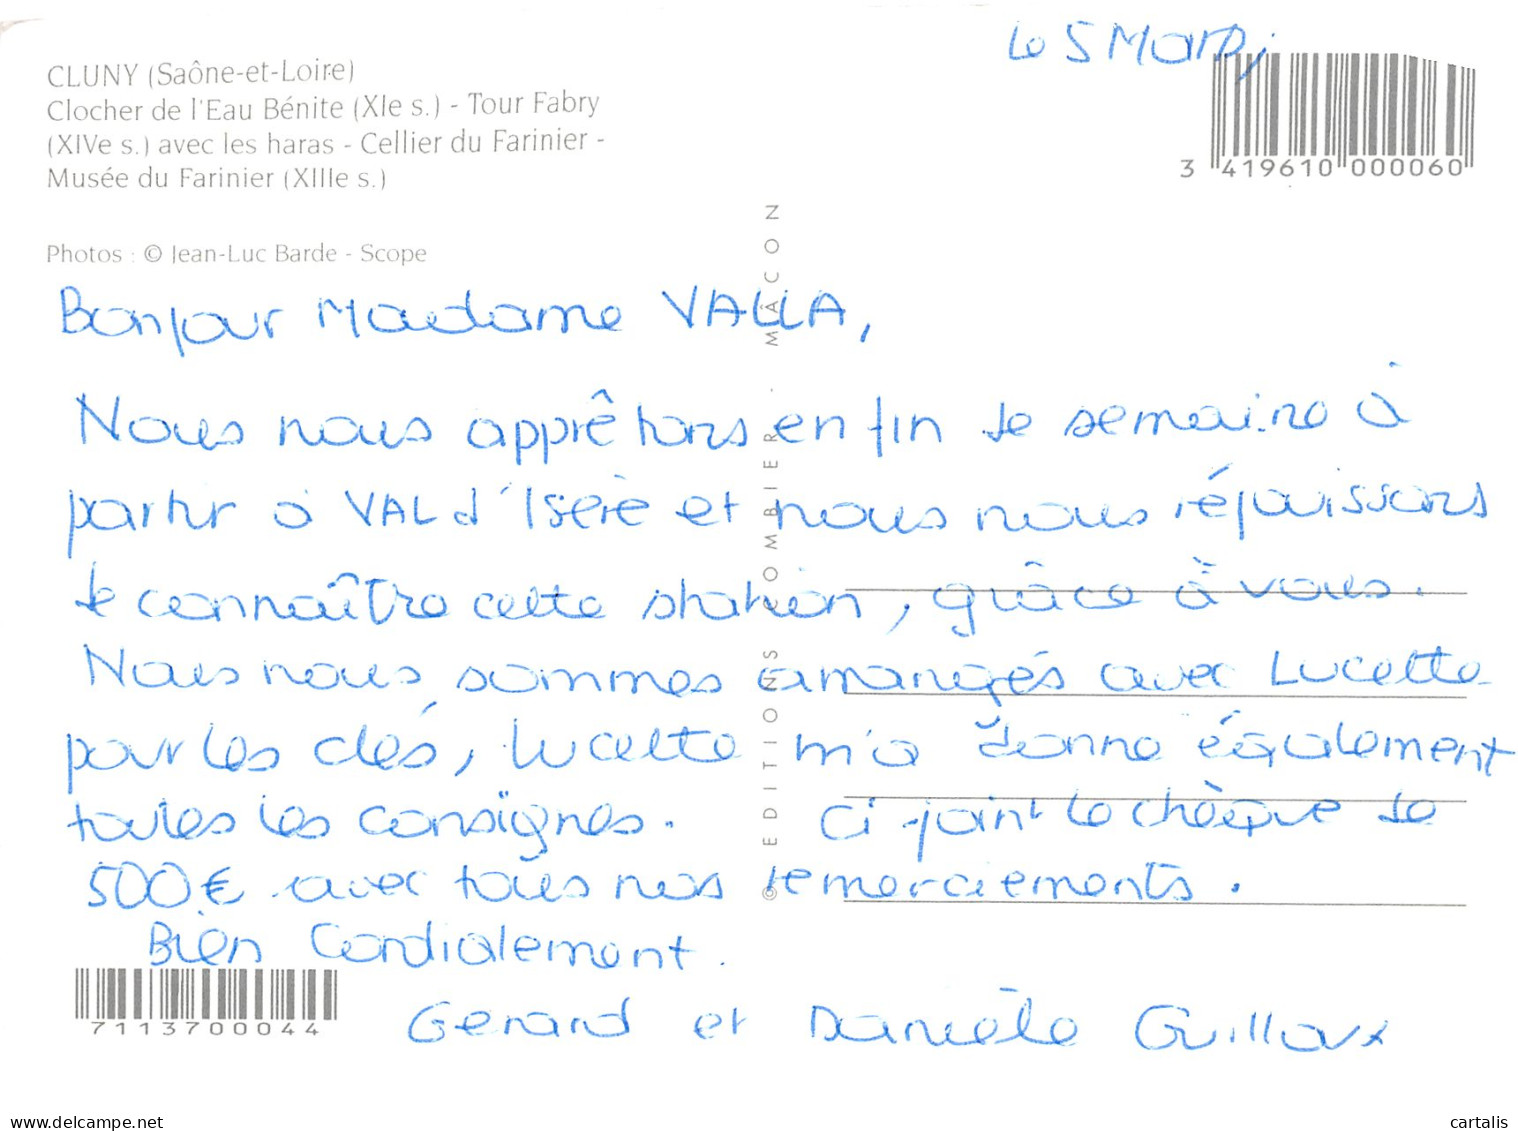 le 5 Mars,
CLUNY (Saône-et-Loire)
Clocher de l'Eau Bénite (XIe s.) - Tour Fabry
(XIVe s.) avec les haras - Cellier du Farinier -
Musée du Farinier (XIIIe s.)
3 419610 000060
Photos : © Jean-Luc Barde - Scope
© EDITIONS COMBIER - MÂCON
Bonjour Madame VALLA,
Nous nous apprêtons en fin de semaine à
partir à VAL d'Isère et nous nous réjouissons
de connaître cette station, grâce à vous.
Nous nous sommes arrangés avec Lucette
pour les clés, Lucette m'a donné également
toutes les consignes. Ci-joint le chèque de
500€ avec tous nos remerciements.
Bien Cordialement.
7113700044
Gérard et Danièle Guilloux
cartalis.net